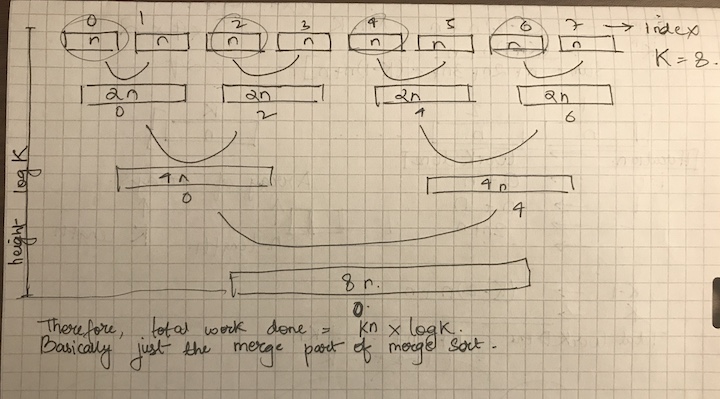 0 1 2 3 4 5 6 7 → index
n n n n n n n n K = 8.
2n 2n 2n 2n
0 2 4 6
4n 4n
0 4
height log K
8n.
0.
Therefore, total work done = Kn × logK.
Basically just the merge part of merge sort.